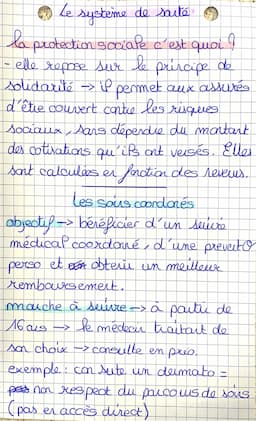 Le système de santé
la protection sociale c'est quoi ?
- elle repose sur le principe de
solidarité → il permet aux assurés
d'être couvert contre les risques
sociaux, sans dépendre du montant
des cotisations qu'ils ont versés. Elles
sont calculées en fonction des revenus.
Les soins coordonés
objectif → bénéficier d'un suivie
médical coordonné, d'une prevent°
perso et obtenir un meilleur
remboursement.
marche à suivre → à partir de
16 ans → le médecin traitant de
son choix → consulte en prio.
exemple : consulte un dermato =
non respect du parcours de soins
(pas en accès direct)